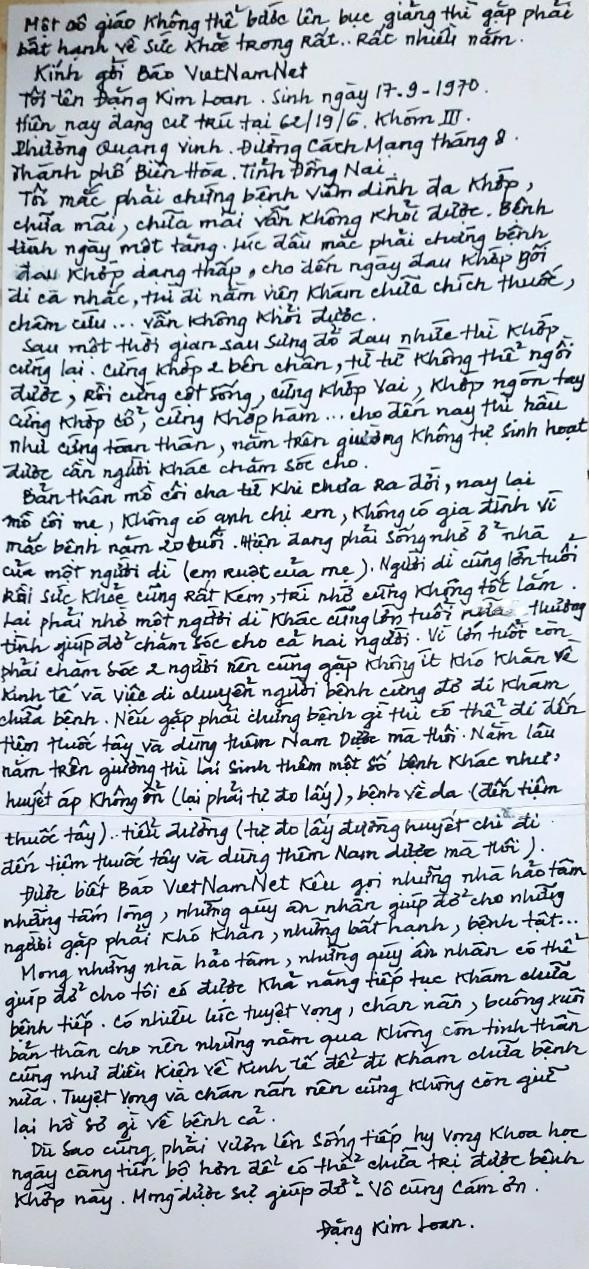 Một cô giáo không thể bước lên bục giảng thì gặp phải
bất hạnh về sức khỏe trong rất.. rất nhiều năm.
Kính gởi Báo VietNamNet
Tôi tên Đặng Kim Loan. Sinh ngày 17-9-1970.
Hiện nay đang cư trú tại 62/19/6. Khóm III.
Phường Quang Vinh. Đường Cách Mạng tháng 8.
Thành phố Biên Hòa. Tỉnh Đồng Nai.
Tôi mắc phải chứng bệnh viêm dính đa khớp,
chữa mãi, chữa mãi vẫn không khỏi được. Bệnh
tình ngày một tăng. Lúc đầu mắc phải chứng bệnh
đau khớp dạng thấp, cho đến ngày đau khớp gối
đi cà nhắc, thì đi nằm viện khám chữa chích thuốc,
châm cứu... vẫn không khỏi được.
Sau một thời gian sau sưng đỏ đau nhức thì khớp
cứng lại. Cứng khớp 2 bên chân, từ từ không thể ngồi
được, rồi cứng cột sống, cứng khớp vai, khớp ngón tay
cứng khớp cổ, cứng khớp hàm... cho đến nay thì hầu
như cứng toàn thân, nằm trên giường không tự sinh hoạt
được cần người khác chăm sóc cho.
Bản thân mồ côi cha từ khi chưa ra đời, nay lại
mồ côi mẹ, không có anh chị em, không có gia đình vì
mắc bệnh năm 20 tuổi. Hiện đang phải sống nhờ ở nhà
của một người dì (em ruột của mẹ). Người dì cũng lớn tuổi
rồi sức khỏe cũng rất kém, trí nhớ cũng không tốt lắm.
Lại phải nhờ một người dì khác cũng lớn tuổi nữa thương
tình giúp đỡ chăm sóc cho cả hai người. Vì lớn tuổi còn
phải chăm sóc 2 người nên cũng gặp không ít khó khăn về
kinh tế và việc di chuyển người bệnh cứng đơ đi khám
chữa bệnh. Nếu gặp phải chứng bệnh gì thì có thể đi đến
tiệm thuốc tây và dùng thêm Nam Dược mà thôi. Nằm lâu
năm trên giường thì lại sinh thêm một số bệnh khác như:
huyết áp không ổn (lại phải tự đo lấy), bệnh về da (đến tiệm
thuốc tây).. tiểu đường (tự đo lấy đường huyết chỉ đi
đến tiệm thuốc tây và dùng thêm Nam dược mà thôi).
Được biết Báo VietNamNet kêu gọi những nhà hảo tâm
những tấm lòng, những quý ân nhân giúp đỡ cho những
người gặp phải khó khăn, những bất hạnh, bệnh tật...
Mong những nhà hảo tâm, những quý ân nhân có thể
giúp đỡ cho tôi có được khả năng tiếp tục khám chữa
bệnh tiếp. Có nhiều lúc tuyệt vọng, chán nản, buông xuôi
bản thân cho nên những năm qua không còn tinh thần
cũng như điều kiện về kinh tế để đi khám chữa bệnh
nữa. Tuyệt vọng và chán nản nên cũng không còn giữ
lại hồ sơ gì về bệnh cả.
Dù sao cũng phải vươn lên sống tiếp hy vọng khoa học
ngày càng tiến bộ hơn để có thể chữa trị được bệnh
khớp này. Mong được sự giúp đỡ. Vô cùng cám ơn.
Đặng Kim Loan.